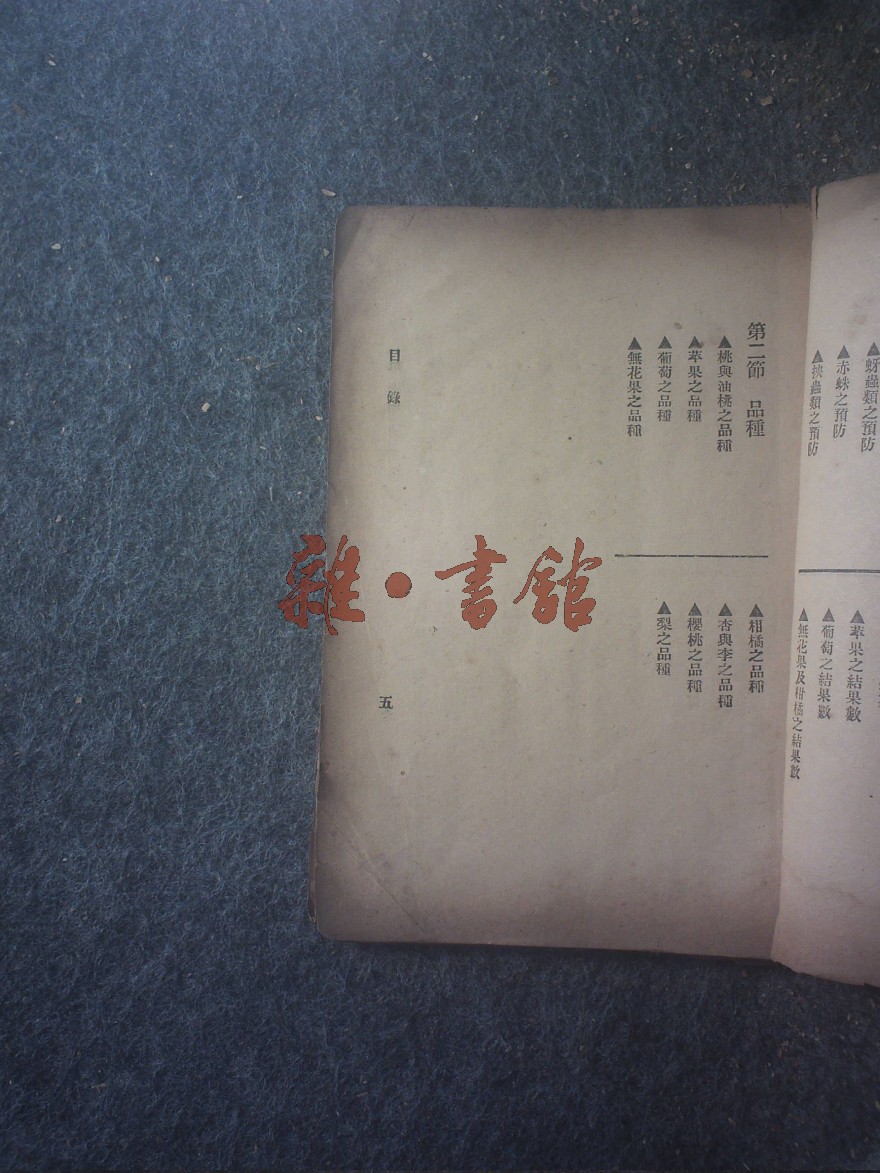 蚜蟲類之預防
赤蛛之預防
挾蟲類之預防
苹果之結果數
葡萄之結果數
無花果及柑橘之結果數
第二節 品種
▲桃與油桃之品種
▲苹果之品種
▲葡萄之品種
▲無花果之品種
▲柑橘之品種
▲杏與李之品種
▲櫻桃之品種
▲梨之品種
目錄
五
雜·書館